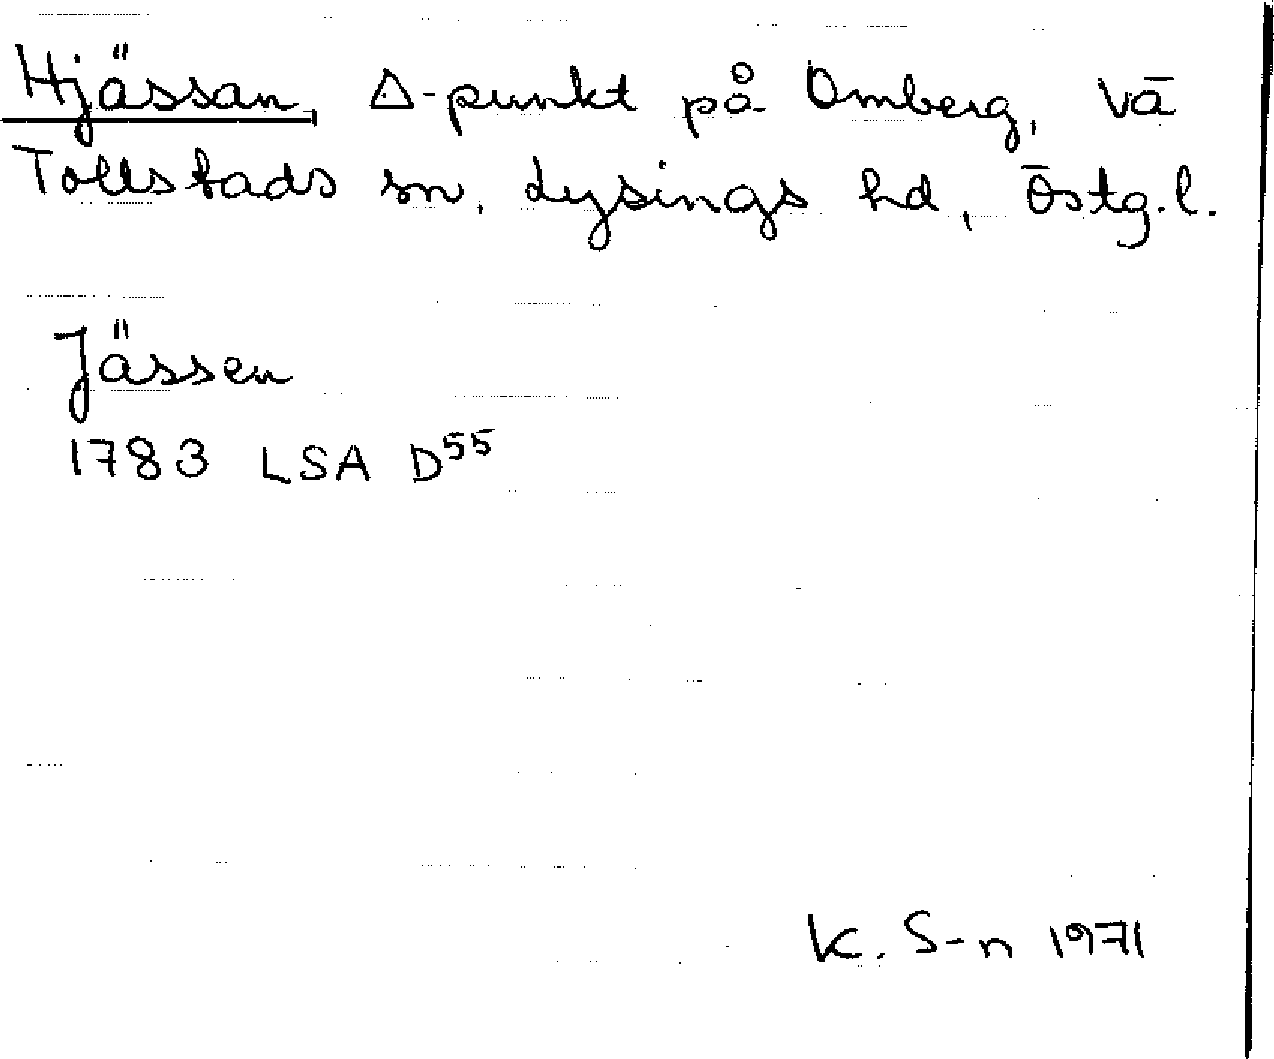 Hjässan, Δ-punkt på Omberg, Vä
Tollstads sn, Lysings hd, Östg.l.
Jässen
1783 LSA D55
K. S-n 1971